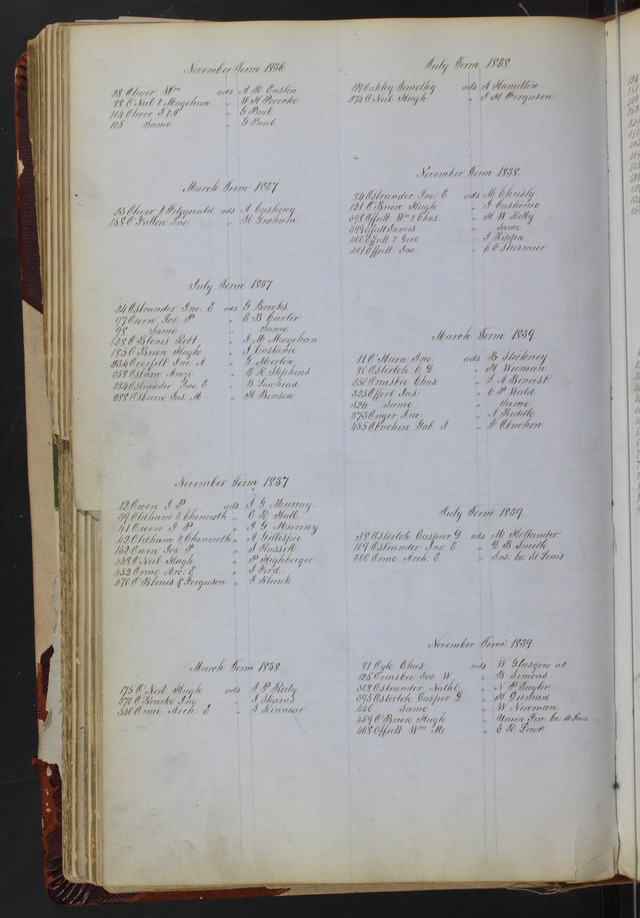 November Term 1836
28 Oliver Wm ads A R Easton
88 O'Neil & Mogehan " W H Pococke
104 Oliver J & R " G Paul
105 Same " G Paul
March Term 1837
53 Oliver & Fitzgerald ads A Cushing
158 O'Fallon Jno. " R Graham
July Term 1837
24 Ostrander Jno. E ads G Brooks
97 Owen Jos. P " E B Carter
98 Same " Same
128 O'Blenis Robt. " J M Mogehan
185 O'Brien Hugh " J Castania
234 Overfelt Jno. A " G Morton
258 Osburn Amzi " B R Stephens
284 Ostrander Jno. E " B Lawhead
288 Osburn Jas. M " M Benson
November Term 1837
12 Owen J P ads J G Murray
39 Oldham & Chenowth " C R Hall
41 Owen J P " J G Murray
42 Oldham & Chenowth " A Gillespie
153 Owen Jos. P " S Russell
448 O'Neil Hugh " P Highberger
452 Orme Arc. E " J Ford
470 O'Blenis & Ferguson " J Klunk
March Term 1838
175 O'Neil Hugh ads A P Reily
270 O'Rourke Jno. " J Stearns
340 Orme Arch. E " J Kinnear
July Term 1838
189 Oakley Timothy ads A Hamilton
274 O'Neil Hugh " J H Ferguson
November Term 1838
84 Ostrander Jno. E ads M Christy
131 O'Brien Hugh " J Castania
398 Offutt Wm & Chas. " M W Kelly
399 Offutt James " Same
400 Offutt & Gore " J Rippa
401 Offutt Jas. "
March Term 1839
11 O'Hara Jno. ads B Stickney
80 Osterloh C G " H Wieman
250 Ormsbee Chas. " L A Benoist
325 Offort Jas. " C P Wald
326 Same " Same
373 Onger Jno. " A Biddle
455 Obuchon Gab. J " F Obuchon
July Term 1839
38 Osterloh Casper G ads M Hollander
109 Ostrander Jno. E " G B Smith
300 Orme Arch. E " Ins. Co. St Louis
November Term 1839
81 Ogle Chas. ads W Glasgow et
125 Ormsbee Jos. W " B Simons
308 Ostrander Nathl. " N P Taylor
395 Osterloh Casper G " H Grohan
440 Same " W Newman
459 O'Brien Hugh " Union Fire Co St Louis
468 Offutt Wm M. " E R Lowe